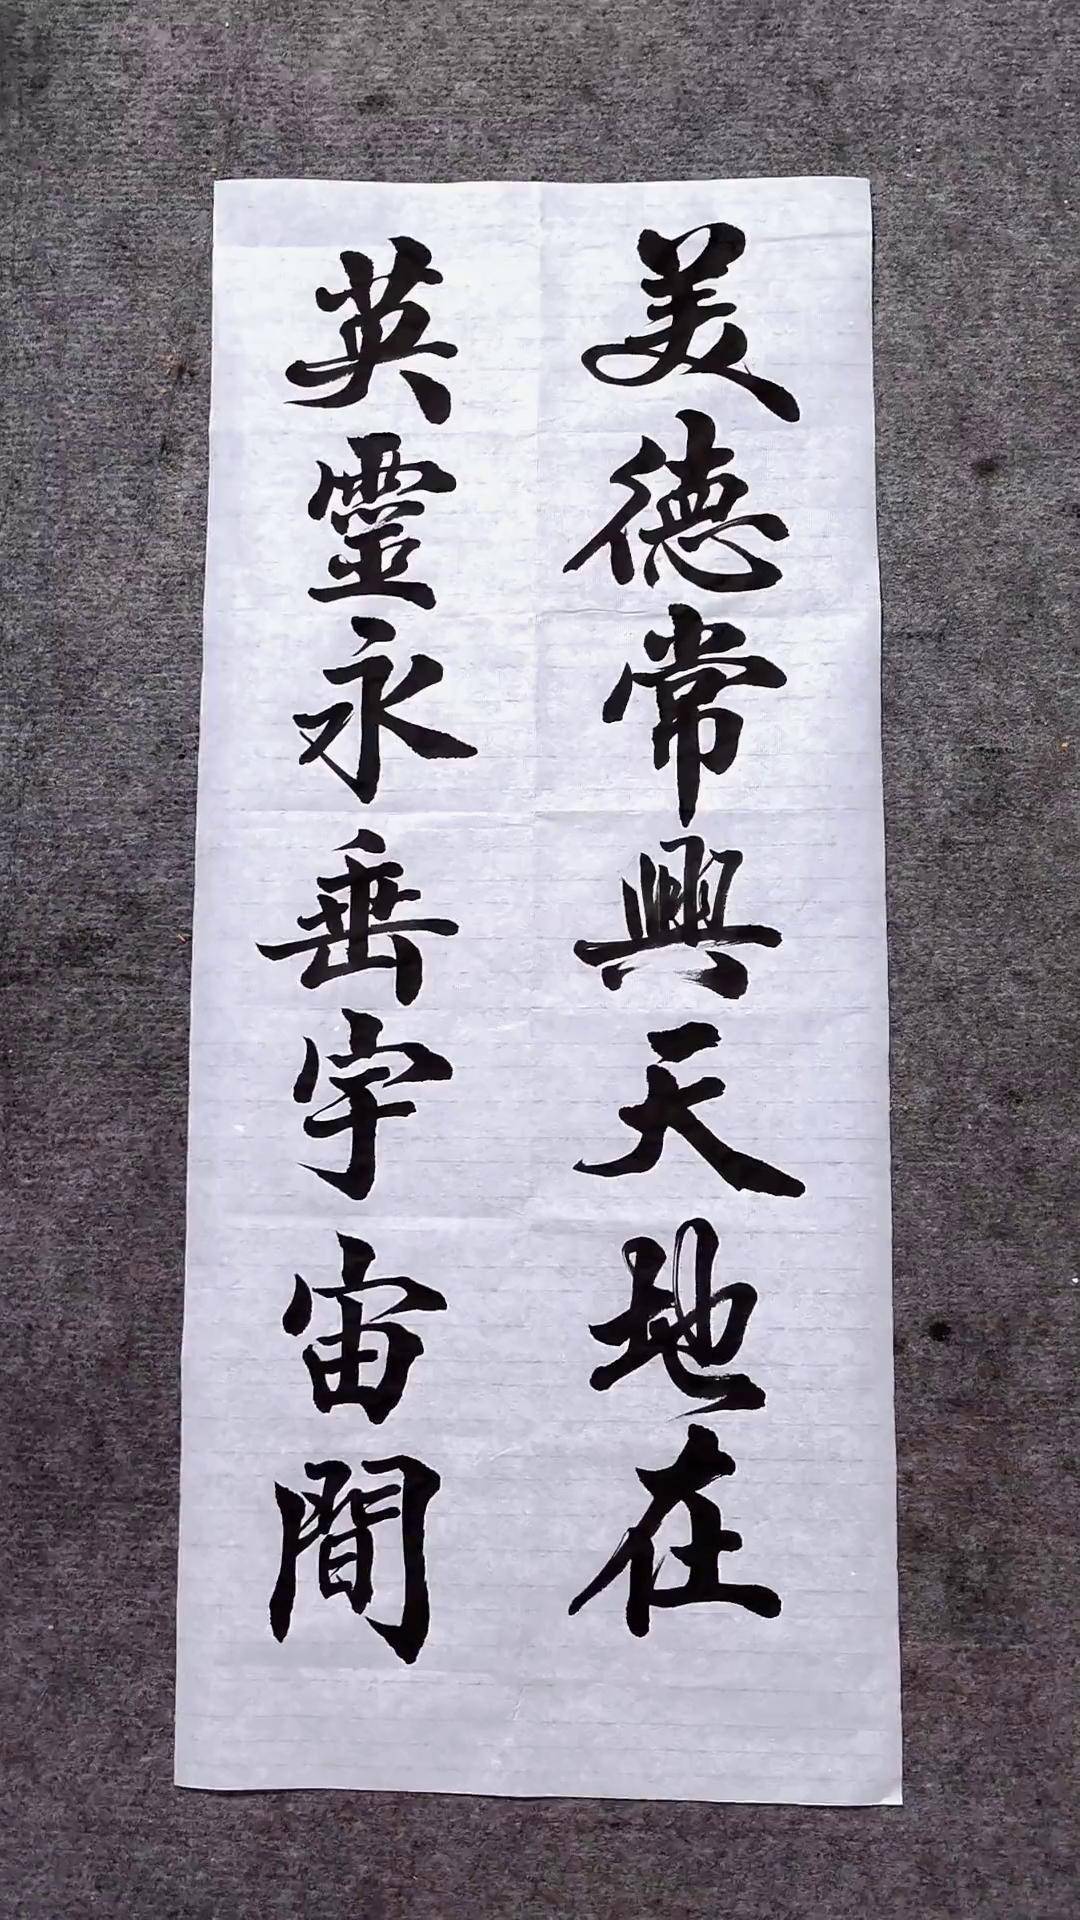 美德常興天地在
英靈永垂宇宙間